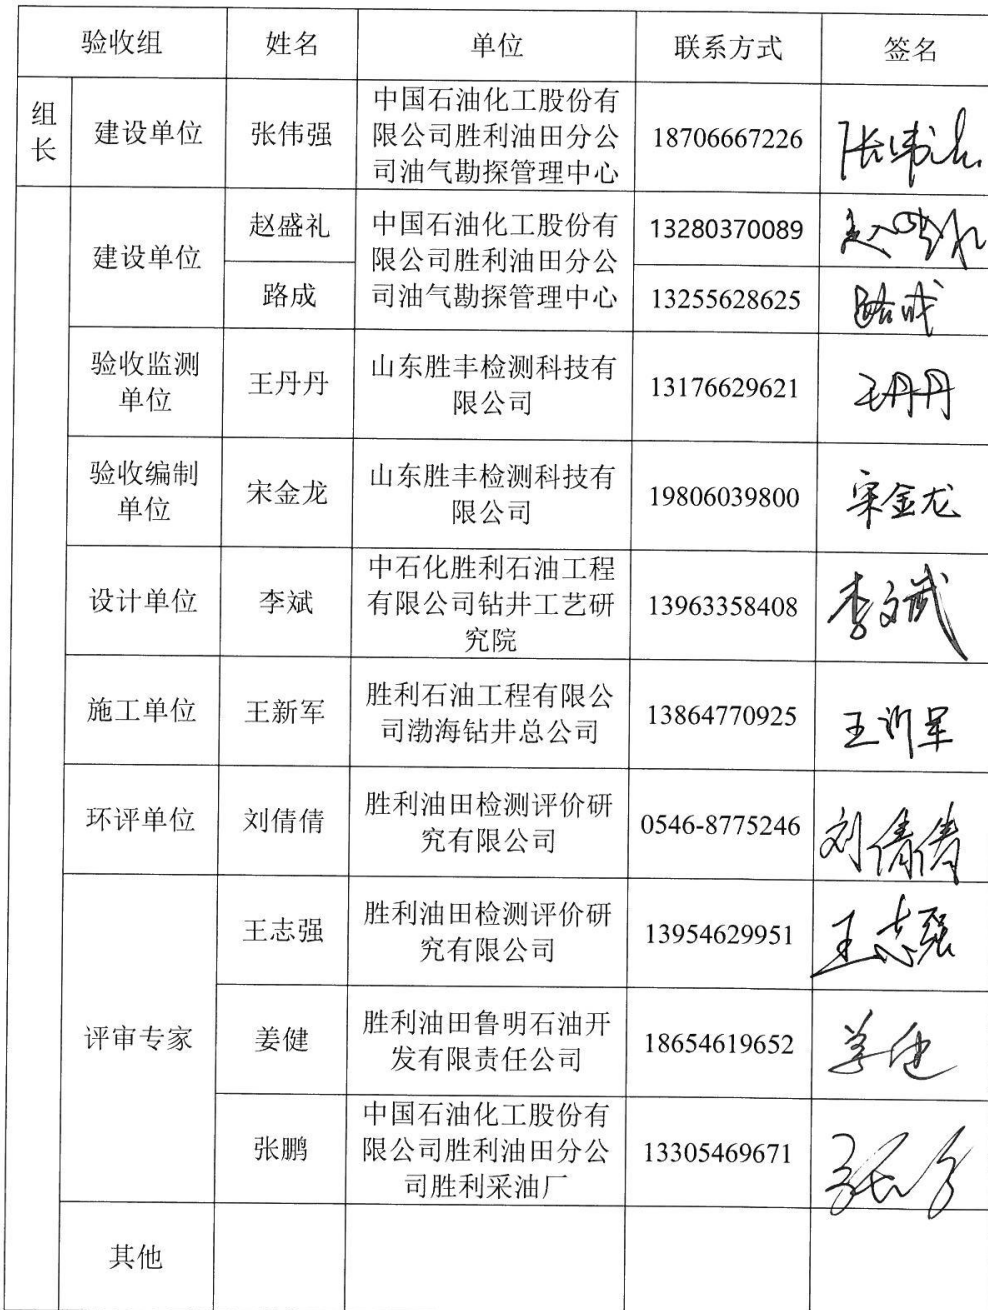 验收组 姓名 单位 联系方式 签名
组长 建设单位 张伟强 中国石油化工股份有
限公司胜利油田分公
司油气勘探管理中心 18706667226 张伟强
建设单位 赵盛礼 中国石油化工股份有
限公司胜利油田分公
司油气勘探管理中心 13280370089 赵盛礼
路成 13255628625 路成
验收监测
单位 王丹丹 山东胜丰检测科技有
限公司 13176629621 王丹丹
验收编制
单位 宋金龙 山东胜丰检测科技有
限公司 19806039800 宋金龙
设计单位 李斌 中石化胜利石油工程
有限公司钻井工艺研
究院 13963358408 李斌
施工单位 王新军 胜利石油工程有限公
司渤海钻井总公司 13864770925 王新军
环评单位 刘倩倩 胜利油田检测评价研
究有限公司 0546-8775246 刘倩倩
评审专家 王志强 胜利油田检测评价研
究有限公司 13954629951 王志强
姜健 胜利油田鲁明石油开
发有限责任公司 18654619652 姜健
张鹏 中国石油化工股份有
限公司胜利油田分公
司胜利采油厂 13305469671 张鹏
其他